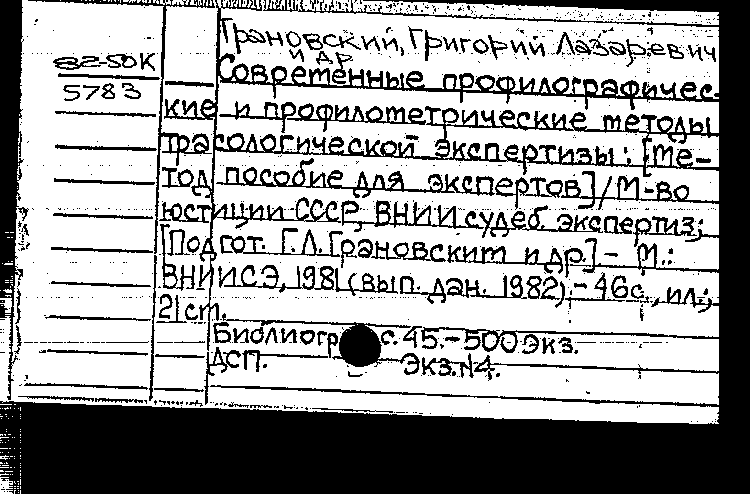 Грановский, Григорий Лазаревич
и др
82-50К
Современные профилографичес-
5783
кие и профилометрические методы
трасологической экспертизы: [Ме-
тод. пособие для экспертов]/М-во
юстиции СССР, ВНИИ судеб. экспертиз;
[Подгот. Г.Л. Грановским и др.] - М.:
ВНИИСЭ, 1981 (вып. дан. 1982). - 46с., ил.;
21 cm.
Библиогр с. 45. - 500 Экз.
ДСП. Экз. N4.